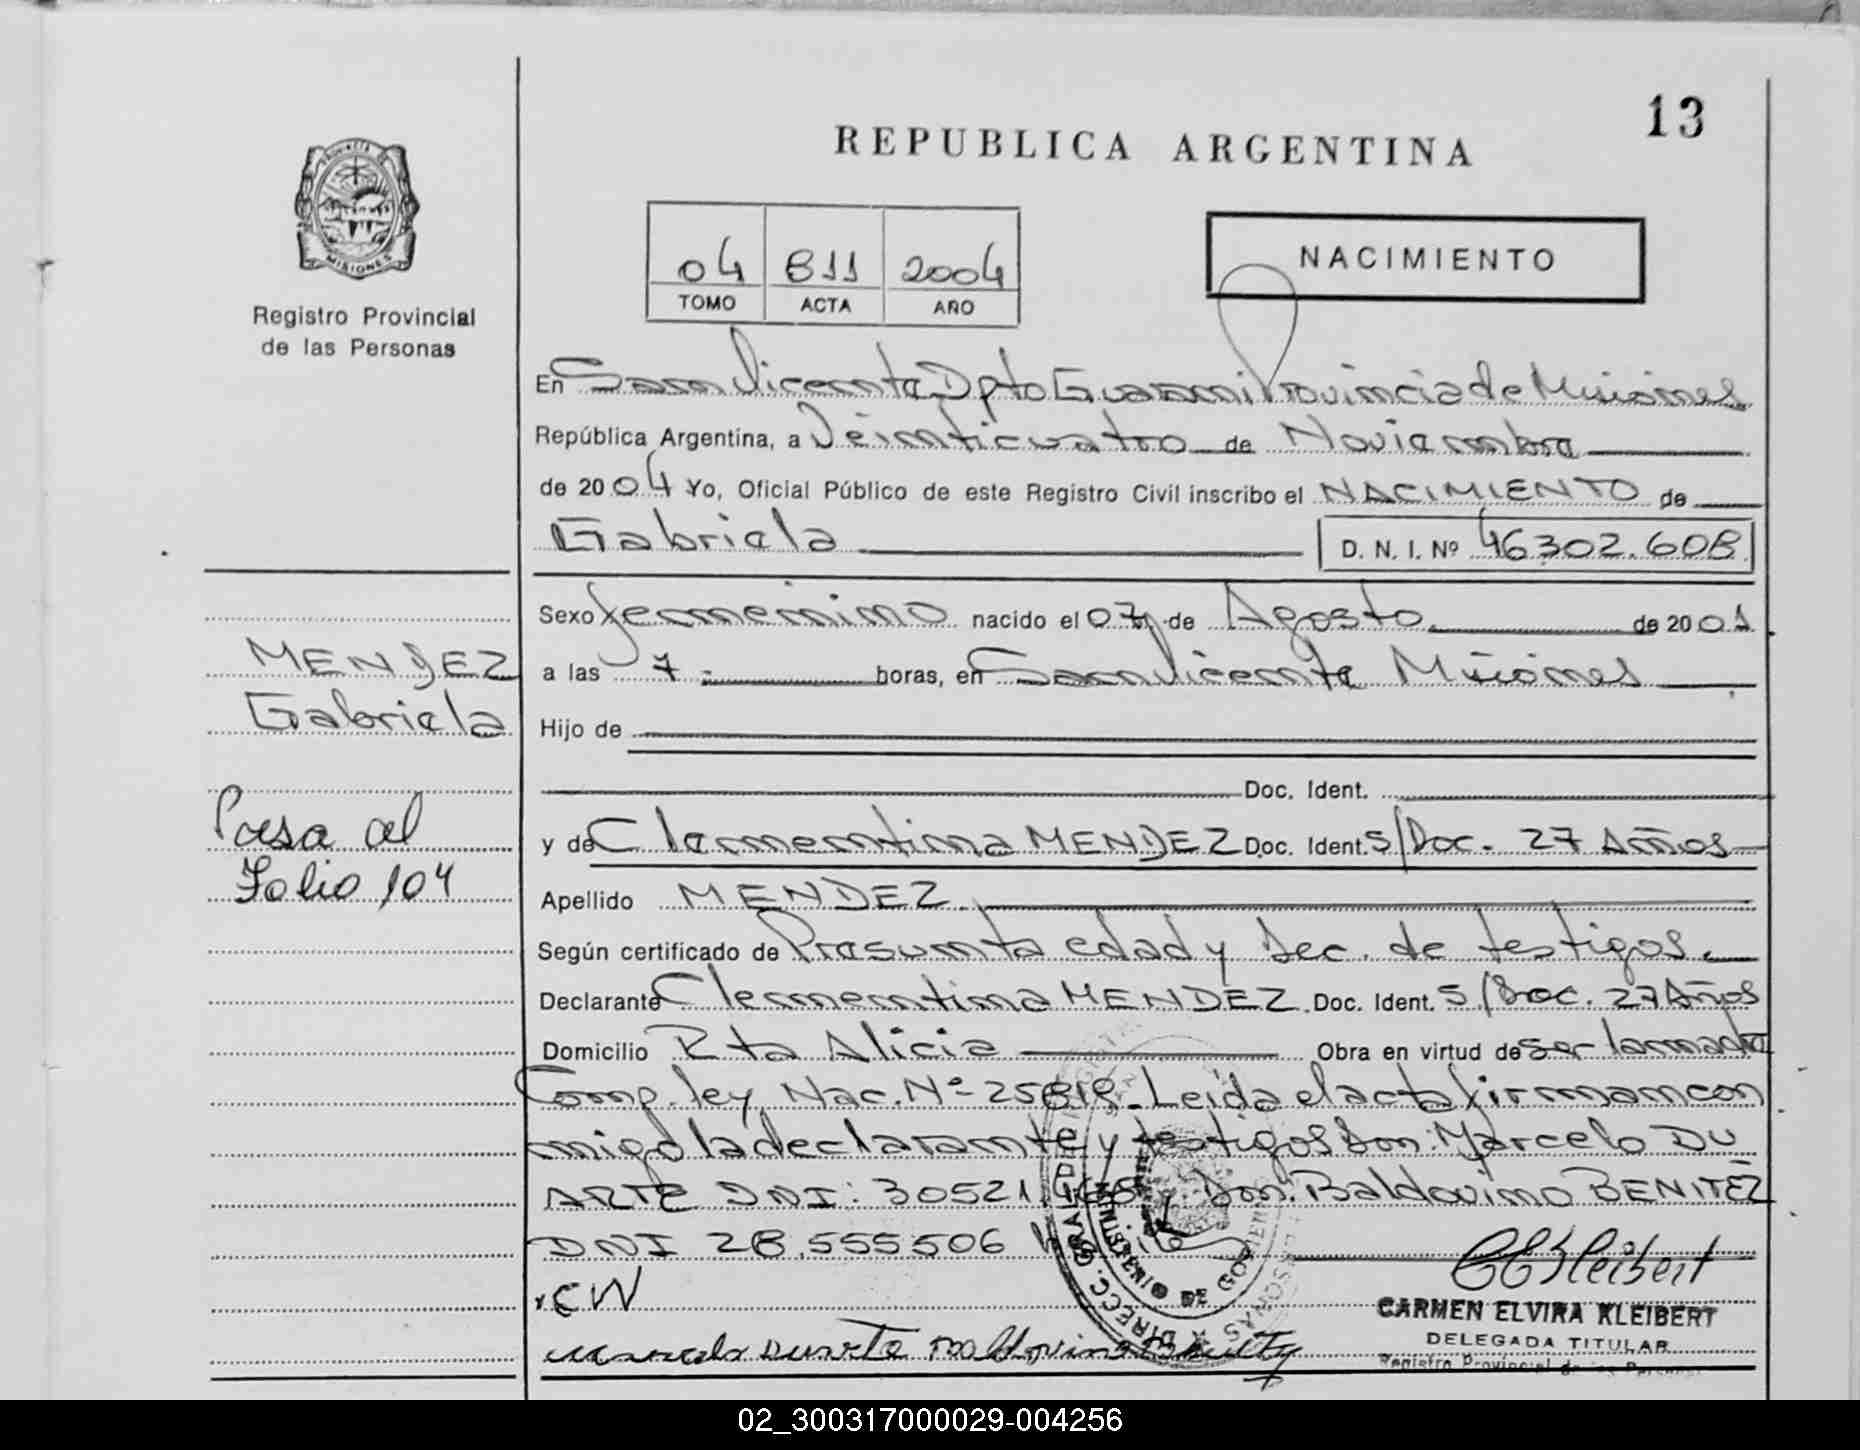 13
REPUBLICA ARGENTINA
PROVINCIA DE
MISIONES
Registro Provincial
de las Personas
04 811 2004
TOMO ACTA AÑO
NACIMIENTO
En San Vicente Dpto Guarani Provincia de Misiones
República Argentina, a Veinticuatro de Noviembre
de 2004 Yo, Oficial Público de este Registro Civil inscribo el NACIMIENTO de
Gabriela D. N. I. Nº 46302.608
Sexo femenino nacido el 07 de Agosto de 2001
MENDEZ
a las 7 horas, en San Vicente Misiones
Gabriela
Hijo de
Doc. Ident.
Pasa al
y de Clementina MENDEZ Doc. Ident. S/Doc. 27 Años
Folio 104
Apellido MENDEZ
Según certificado de Presunta edad y Dec. de testigos.
Declarante Clementina MENDEZ Doc. Ident. S/Doc. 27 Años
Domicilio Pta Alicia Obra en virtud de ser la madre
Comp. ley Nac. Nº 25819. Leida el acta firman con
migo la declarante y testigos Don: Marcelo DU
ARTE DNI: 30521 Don. Baldovino BENITEZ
DNI 28.555506
CW
CEKleibert
CARMEN ELVIRA KLEIBERT
DELEGADA TITULAR
Registro Provincial de las Personas
Duarte Baldovino
DIRECC. GRAL DE
MINISTERIO DE GOBIERNO
02_300317000029-004256